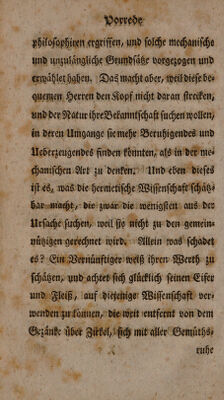 Vorrede
philosophiren ergriffen, und solche mechanische
und unzulängliche Grundsätze vorgezogen und
erwählet haben. Das macht aber, weil diese be-
quemen Herren den Kopf nicht daran strecken,
und der Natur ihre Bekanntschaft suchen wollen,
in deren Umgange sie mehr Beruhigendes und
Ueberzeugendes finden könnten, als in der me-
chanischen Art zu denken. Und eben dieses
ist es, was die hermetische Wissenschaft schätz-
bar macht, die zwar die wenigsten aus der
Ursache suchen, weil sie nicht zu den gemein-
nützigen gerechnet wird. Allein was schadet
es? Ein Vernünftiger weiß ihren Werth zu
schätzen, und achtet sich glücklich seinen Eifer
und Fleiß, auf diejenige Wissenschaft ver-
wenden zu können, die weit entfernt von dem
Gezänke über Zirkel, sich mit aller Gemüths-
ruhe